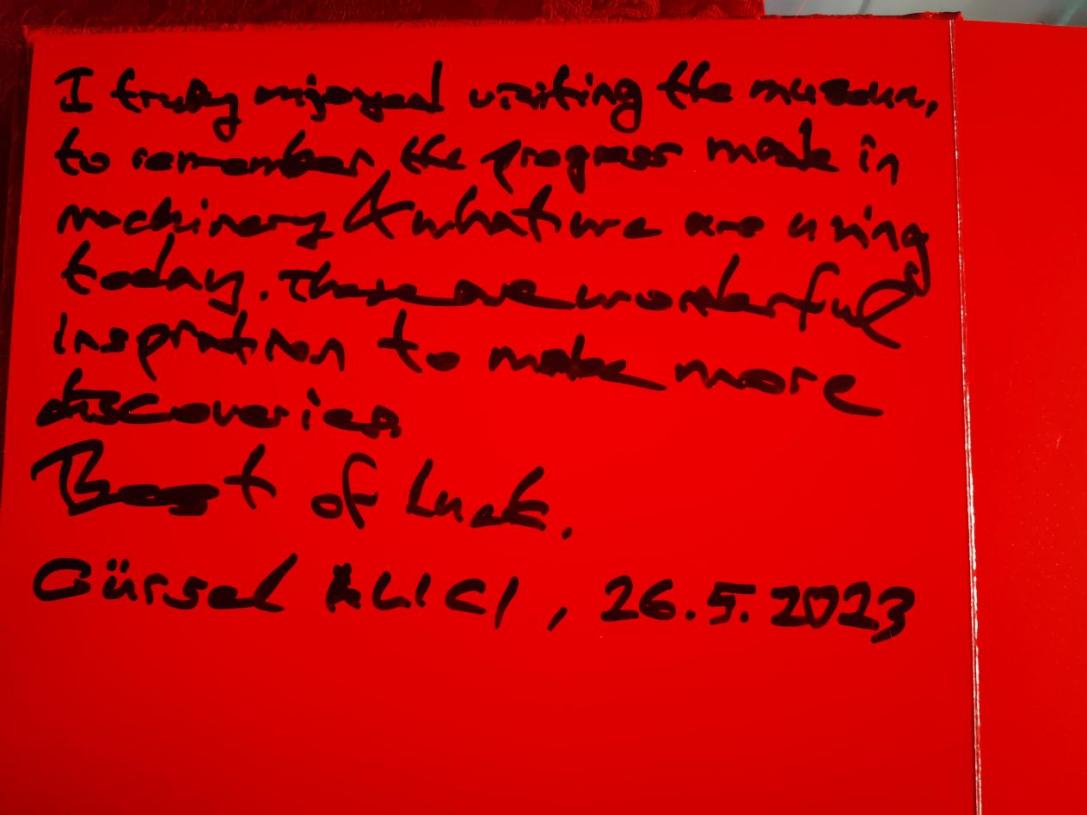 I truly enjoyed visiting the museum,
to remember the progress made in
machinery & what we are using
today. These are wonderful
inspiration to make more
discoveries.
Best of Luck.
Gürsel ALICI, 26.5.2023